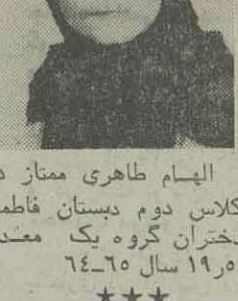 الهام طاهری ممتاز د
کلاس دوم دبستان فاطم
دختران گروه یک معد
۱۹ر۵ سال ٦٥ـ٦٤
★★★